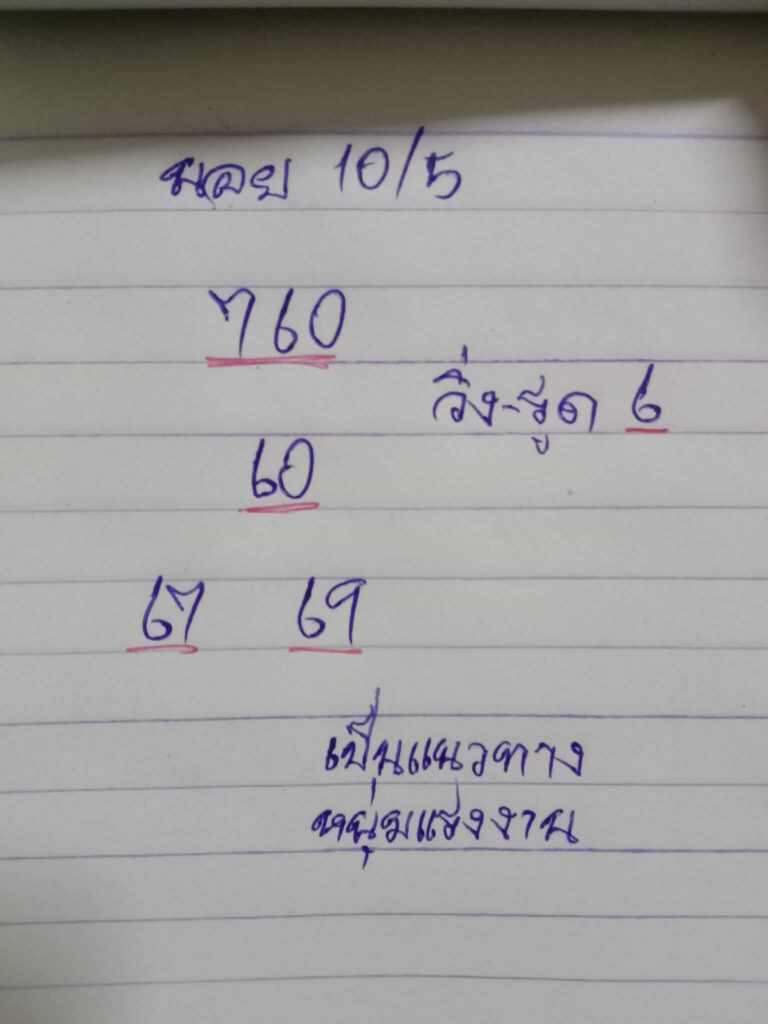 นอย 10/5
760
วิ่ง-รูด 6
60
67 69
เป็นแนวทาง
หนุ่มแรงงาน